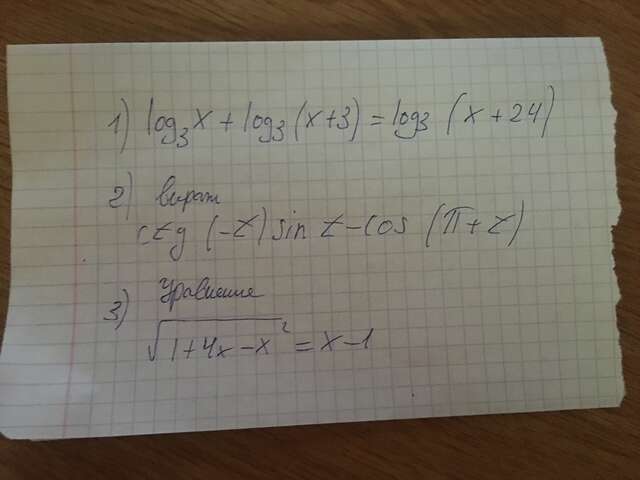 1) log₃ x + log₃ (x+3) = log₃ (x+24)
2) выраж
ctg (-t) sin t - cos (π + t)
3) уравнение
√1+4x-x² = x-1